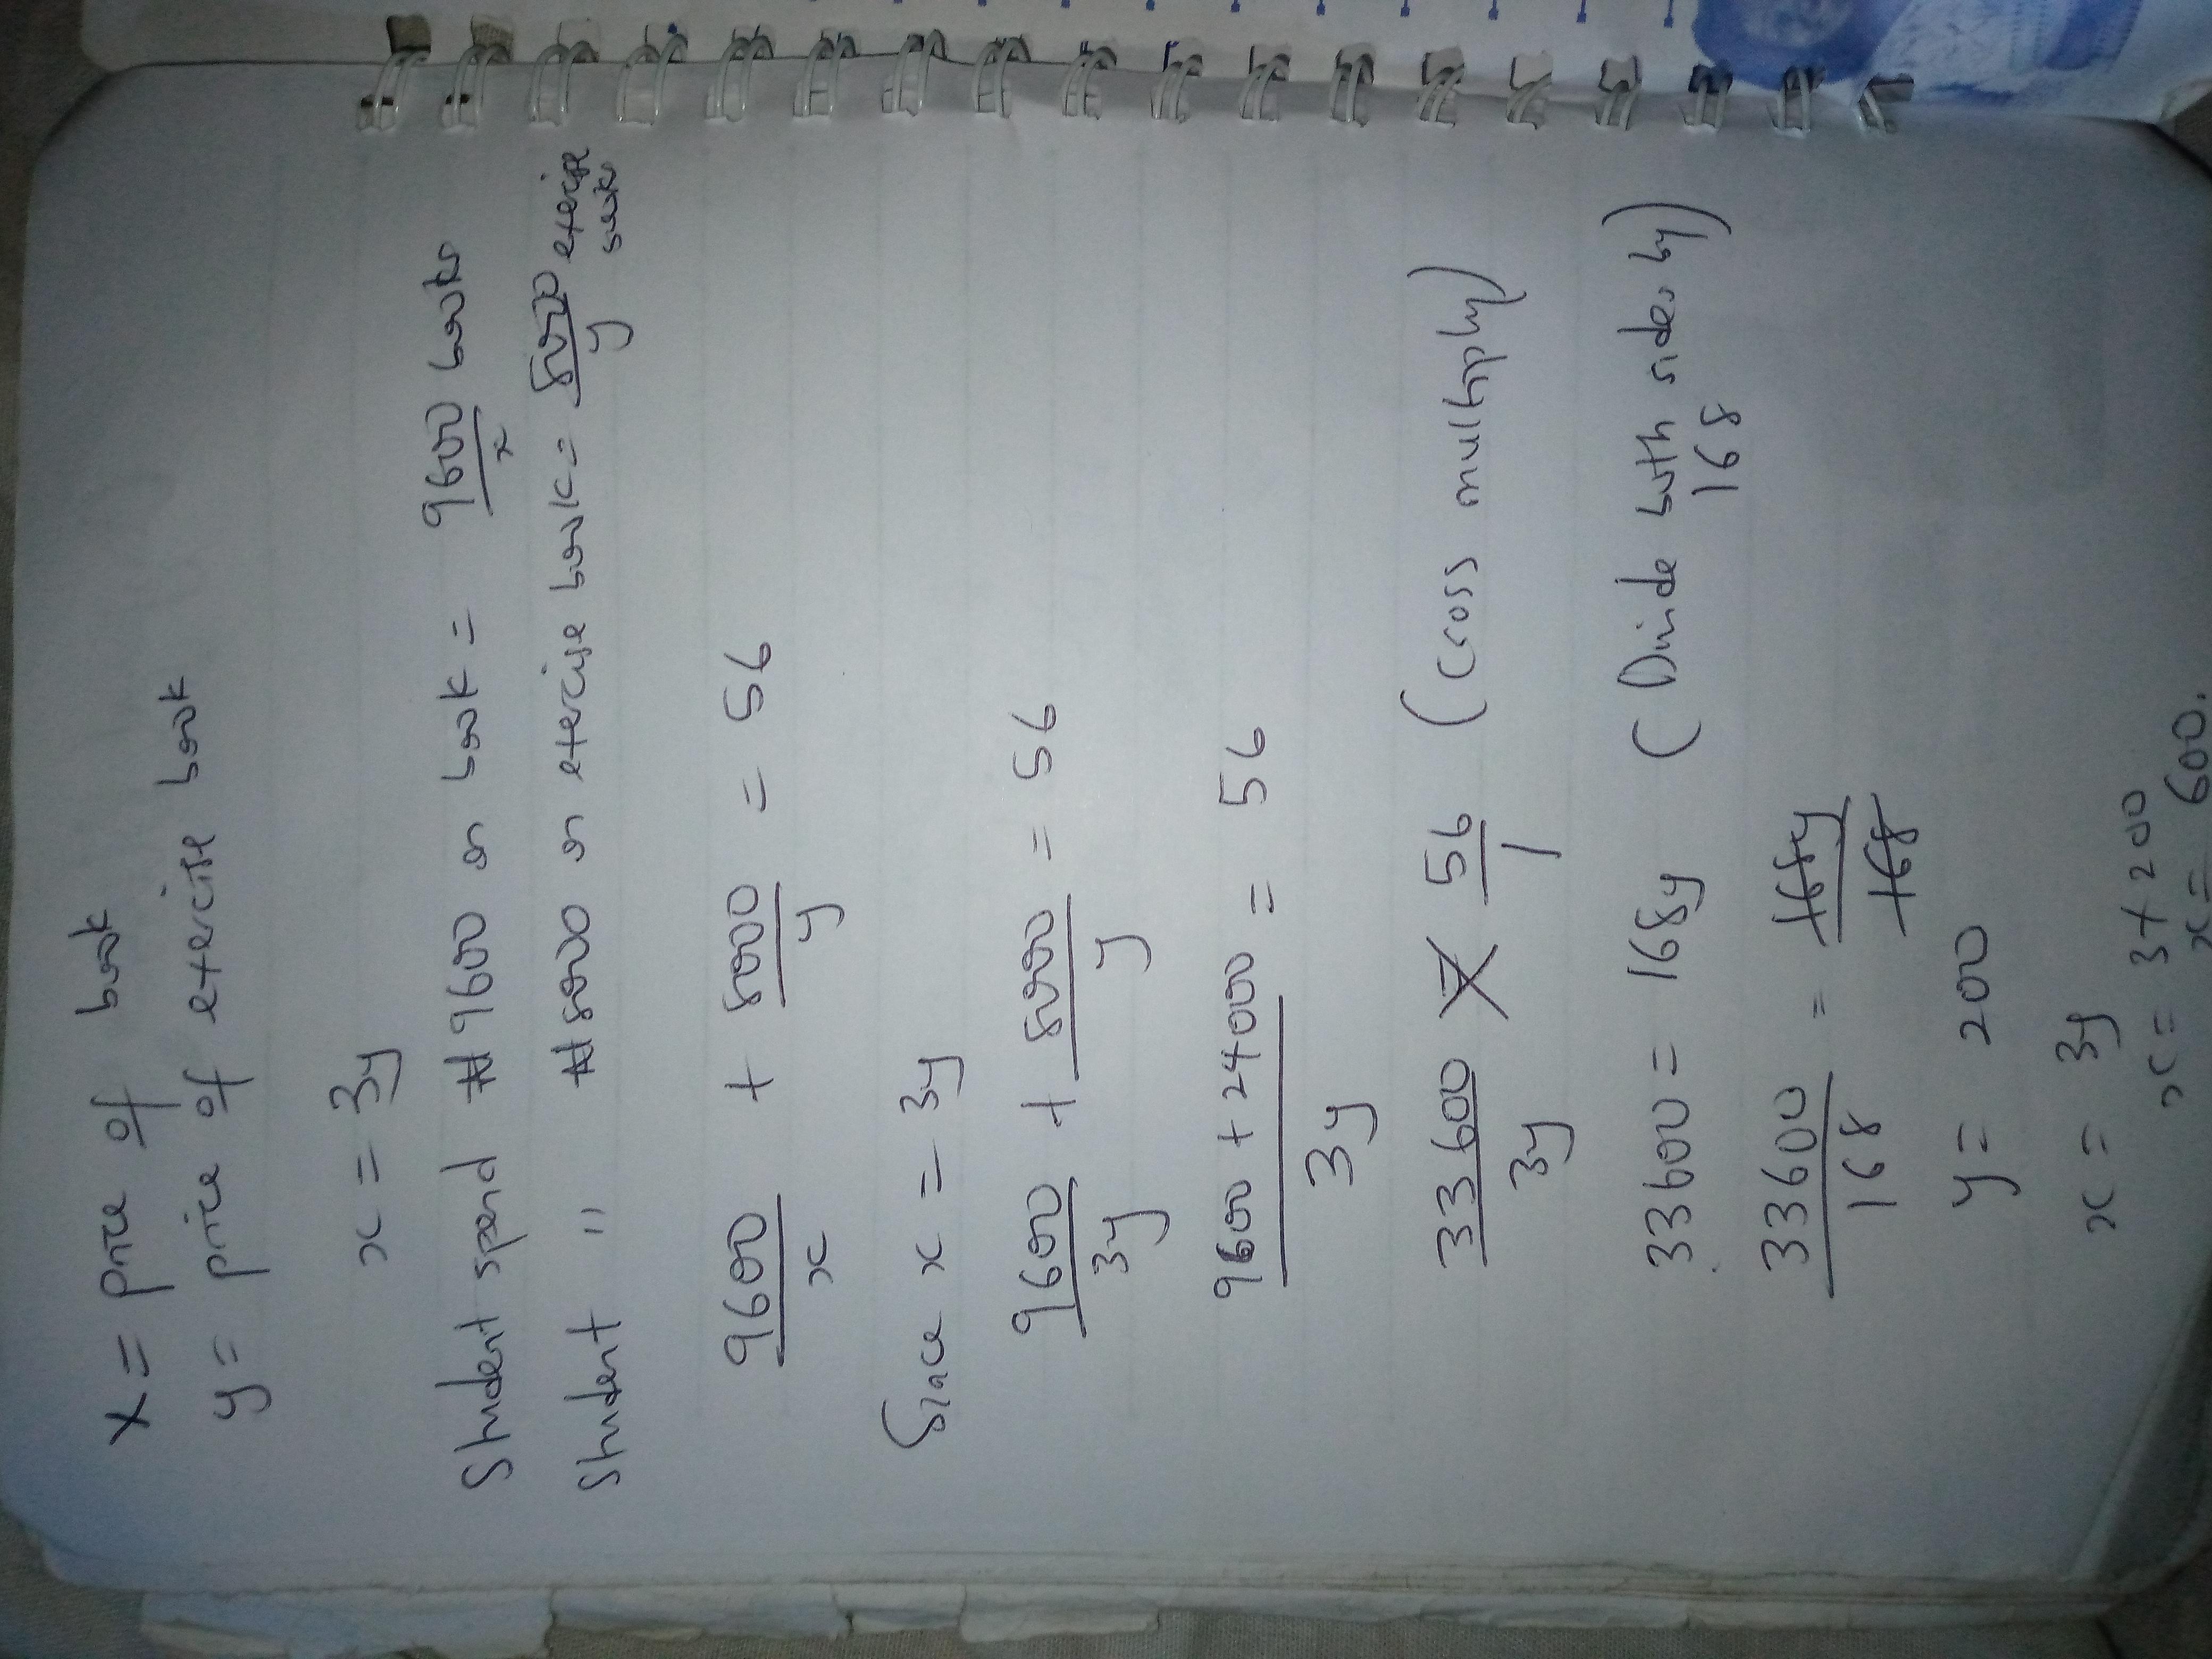 x = price of book
y = price of exercise book
x = 3y
Student spend ₦9600 on book = 9600/x books
Student " ₦8000 on exercise book = 8000/y exercise books
9600/x + 8000/y = 56
Since x = 3y
9600/3y + 8000/y = 56
9600 + 24000/3y = 56
33600/3y = 56/1 (cross multiply)
33600 = 168y (Divide both sides by 168)
33600/168 = 168y/168
y = 200
x = 3y
x = 3 × 200
x = 600.